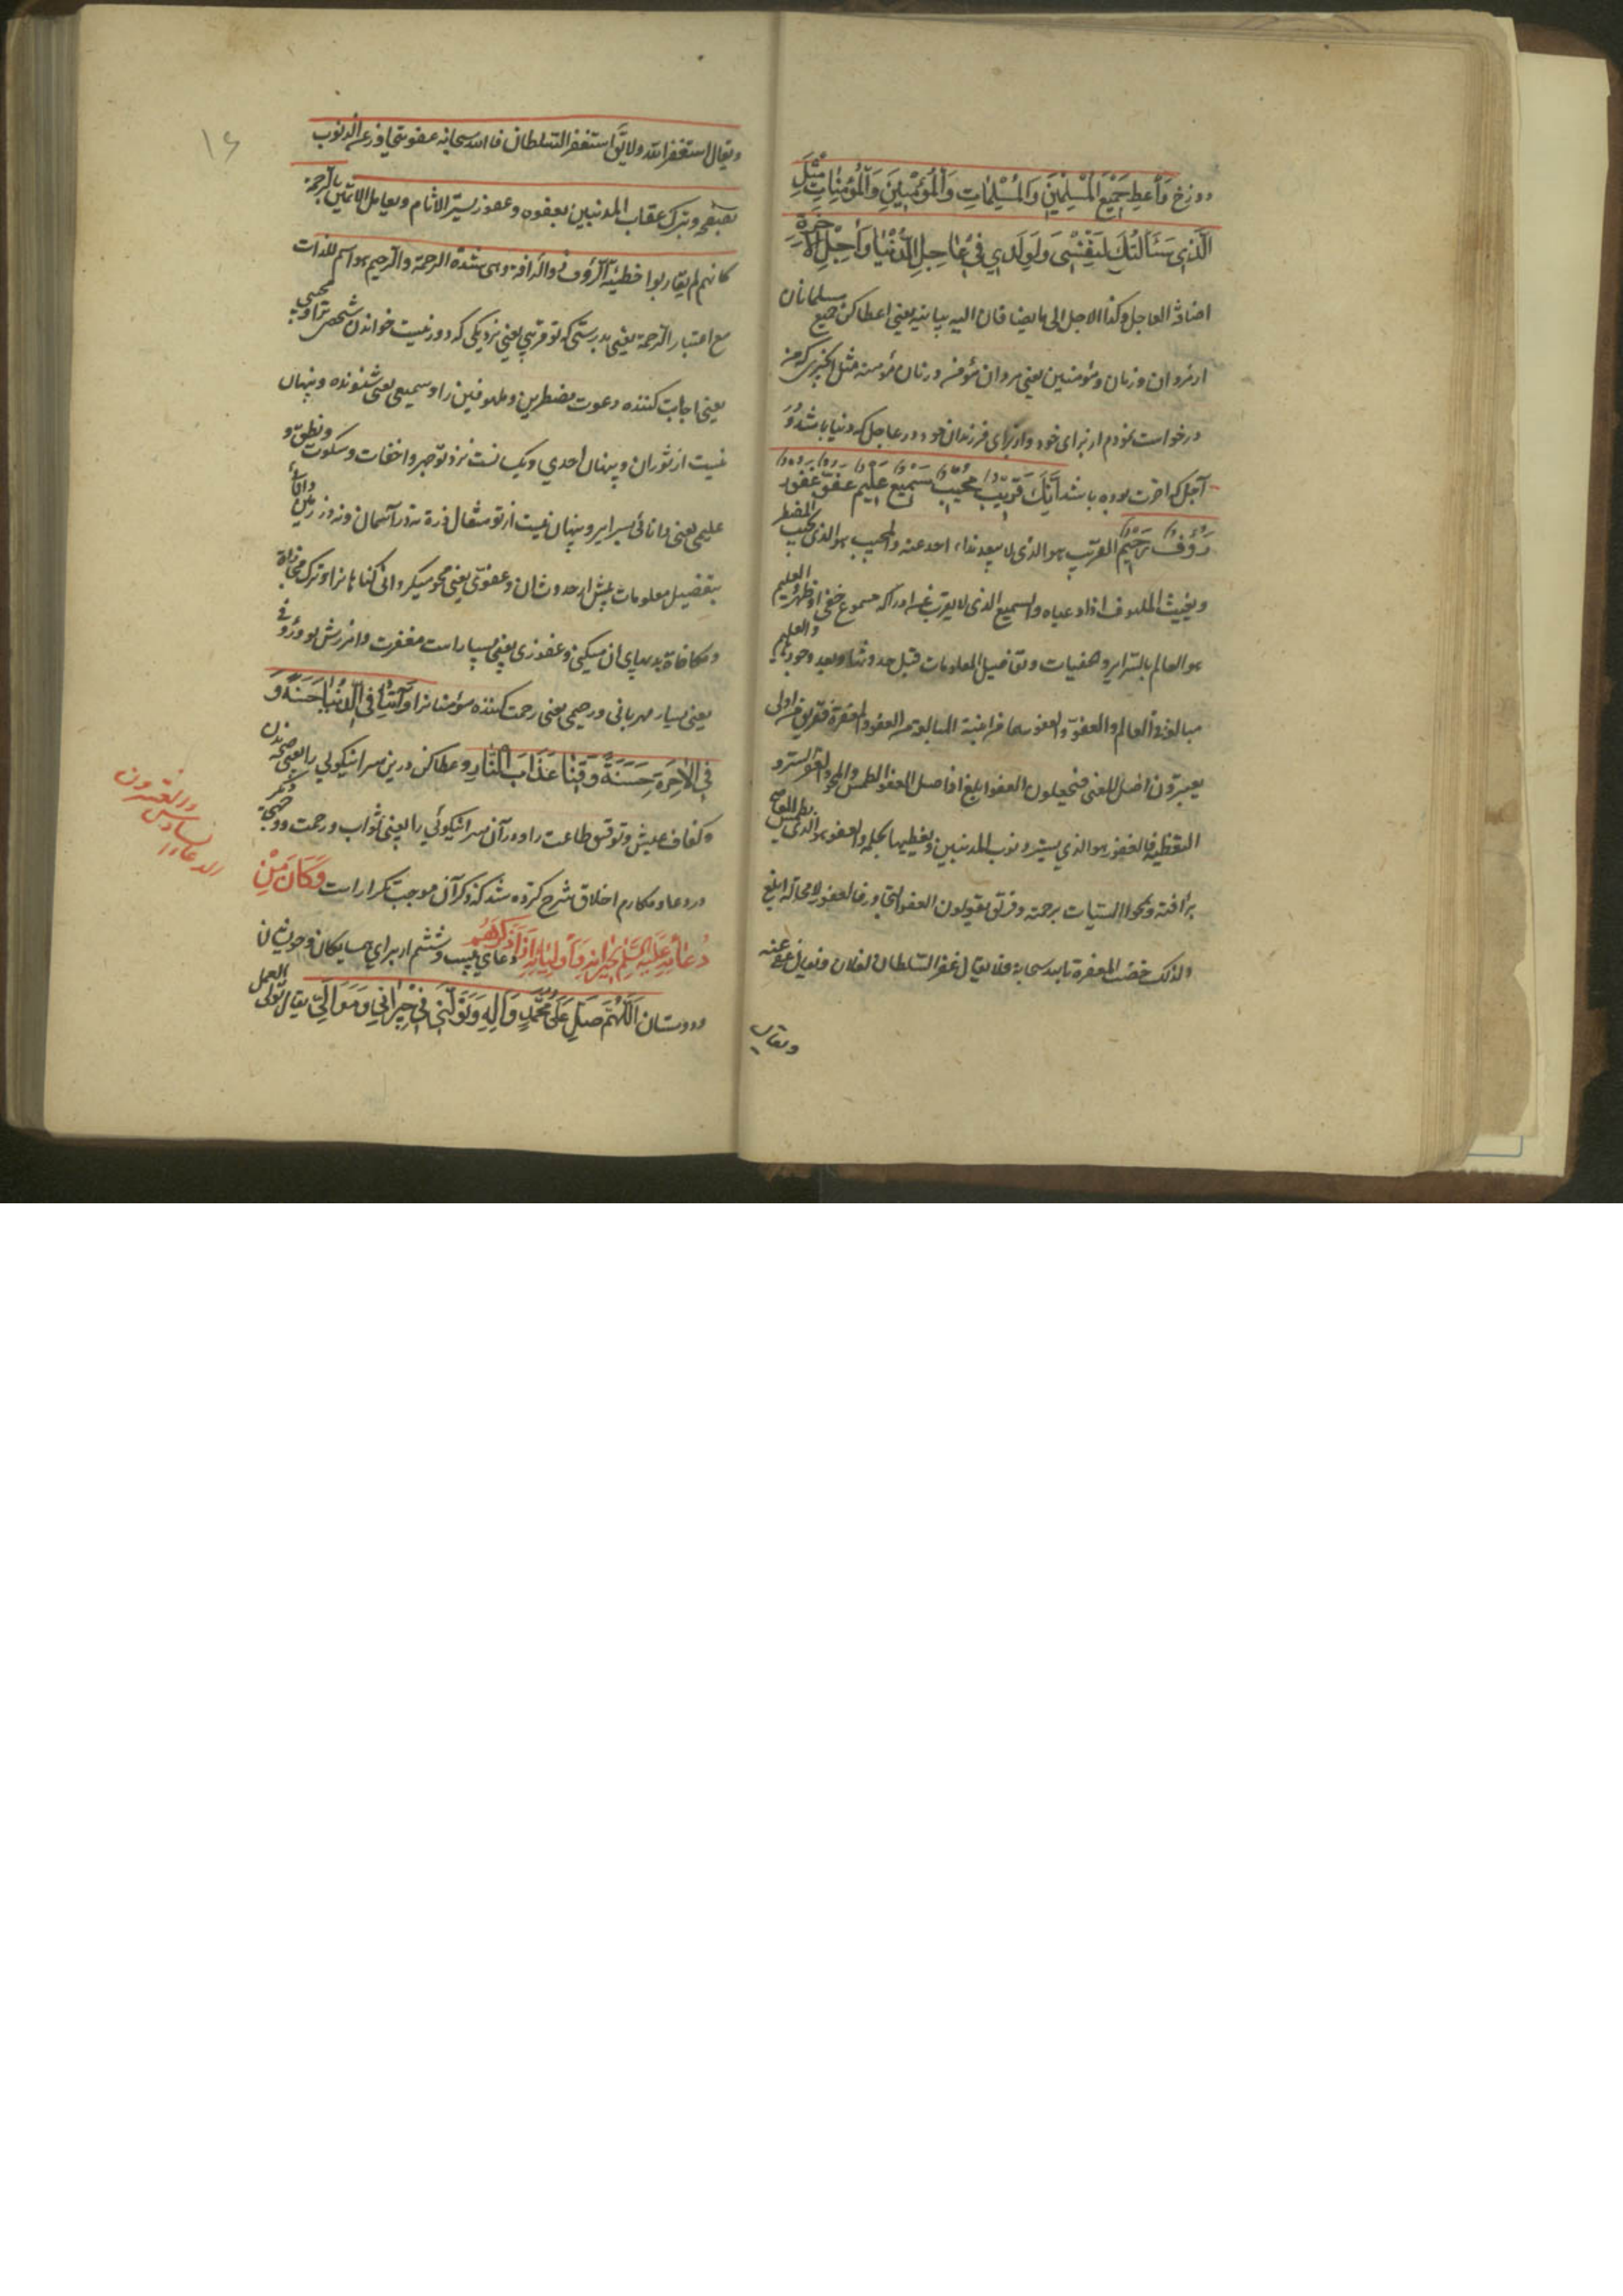 دوزخ وَأَعْطِ جَمِيعَ الْمُسْلِمِينَ وَالْمُسْلِمَاتِ وَالْمُؤْمِنِينَ وَالْمُؤْمِنَاتِ مِثْلَ
الَّذِي سَأَلْتُكَ لِنَفْسِي وَلِوَلَدِي فِي عَاجِلِ الدُّنْيَا وَآجِلِ الْآخِرَةِ
اضافة العاجل وكذا الاجل الى ما يضافان اليه بيانيه يعنى اعطا كن جميع مسلمانان
از مردان و زنان و مؤمنين يعنى مردان مؤمن و زنان مؤمنه مثل انچيزى كه من
درخواست نمودم از براى خود و از براى فرزندان خود در عاجل كه دنيا باشد و در
آجل كه اخرت بوده باشد اِنَّكَ قَرِيبٌ مُجِيبٌ سَمِيعٌ عَلِيمٌ عَفُوٌّ غَفُورٌ
رَؤُفٌ رَحِيمٌ القريب هو الذى لا يبعد نداء احد عنه والمجيب هو الذى يجيب المضطر
ويغيث الملهوف اذا دعياه والسميع الذى لا يعزب عن ادراكه مسموع خفى او ظهر والعليم
هو العالم بالسراير والخفيات وتفاضيل المعلومات قبل حدوثها وبعد وجودها والعليم
مبالغة فى العالم والعفوّ والغفور هما من ابنية المبالغة من العفو والمغفرة ففريق من اولى
يعتبرون اصل المعنى فيجعلون العفو ابلغ اذ اصل العفو الطمس والمحو والغفر الستر و
التغطية فالغفور هو الذي يستر ذنوب المذنبين ويغطيها بحلمه والعفو هو الذى يطمس المعاصى
برأفته ويمحو السيئات برحمته وفريق يقولون العفو التجاوز فالغفور لا محالة ابلغ
ولذلك خصت المغفرة بالله سبحانه فلا يقال غفر السلطان لفلان ويقال عفى عنه
ويقال
١٤
ويقال استغفر الله ولا يقال استغفر السلطان فالله سبحانه عفو يتجاوز عن الذنوب
بصفحه ويترك عقاب المذنبين بعفوه وغفور يستر الاثام ويعامل الاثمين بالرحمة
كانهم لم يقاربوا خطيئة الرؤف ذو الرأفة وهى شدة الرحمة والرحيم هو اسم للذات
مع اعتبار الرحمة يعنى بدرستى كه تو قريبى يعنى نزديكى كه دور نيست خواندن شخصى ترا و مجيبى
يعنى اجابت كننده دعوت مضطرين و ملهوفين را و سميعى يعنى شنونده و پنهان
نيست از تو راز و پنهان احدي و يكسانست نزد تو جهر و اخفات و سكوت و نطق و
عليمى يعنى دانائى بسراير و پنهان نيست از تو مثقال ذرة نه در آسمان و نه در زمين و دانائى
بتفضيل معلومات پيش از حدوث ان و عفوّى يعنى محو ميگردانى گناهانرا و ترك مجازاة
و مكافاة بديهاى ان ميكنى و غفورى يعنى بسيار است مغفرت و امرزش تو و رؤفى
يعنى بسيار مهربانى و رحيمى يعنى رحمت كننده مؤمنانرا وَآتِنَا فِي الدُّنْيَا حَسَنَةً وَ
فِي الْاخِرَةِ حَسَنَةً وَقِنَا عَذَابَ النَّارِ و عطا كن درين سرا نيكوئي را يعنى صحة بدن
و كفاف عيش و توفيق طاعت را و در آن سرا نيكوئي را يعنى ثواب و رحمت و
در دعاء مكارم اخلاق شرح كرده شد كه ذكر آن موجب تكرار است وَكَانَ مِنْ
دُعَائِهِ عَلَيْهِ السَّلَمُ لِجِيرَانِهِ وَأَوْلِيَائِهِ إِذَا ذَكَرَهُمْ دعاي بيست و ششم از براي همسايگان و خويشان
و دوستان اَللّهُمَّ صَلِّ عَلَى مُحَمَّدٍ وَآلِهِ وَتَوَلَّنِي فِي جِيرَانِي وَمَوَالِيَّ يقال تولى العمل
الدعاء السادس والعشرون